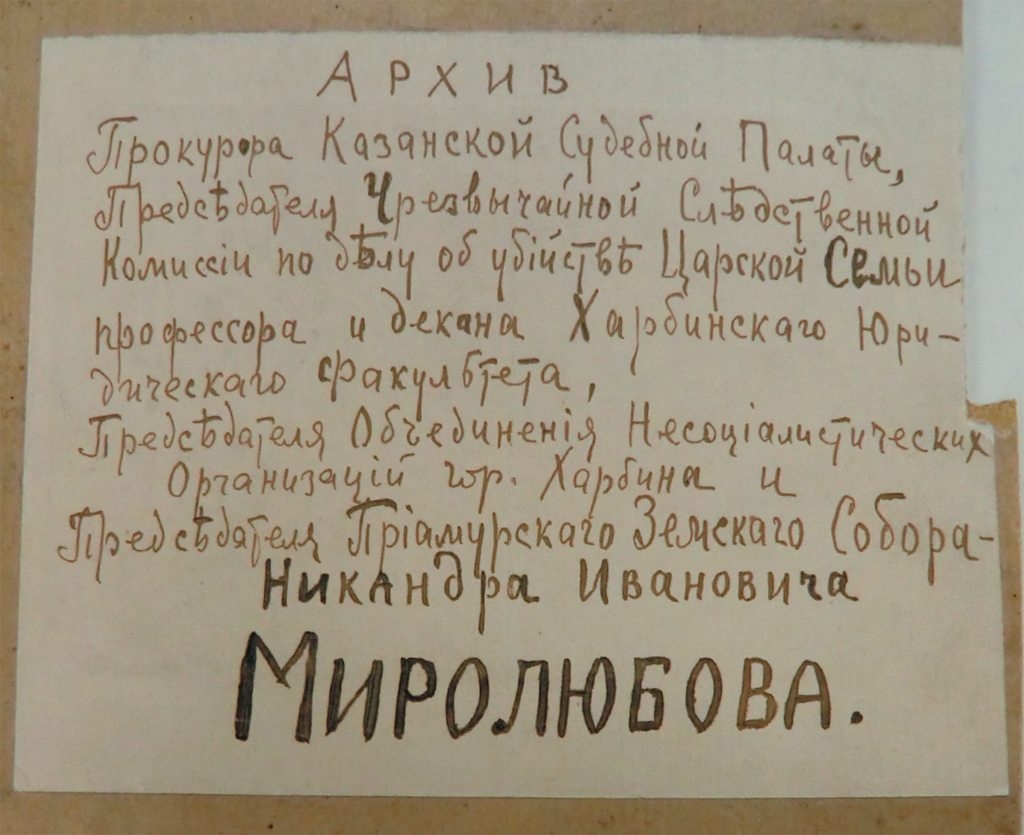 Архив
Прокурора Казанской Судебной Палаты,
Предсѣдателя Чрезвычайной Слѣдственной
Комиссіи по дѣлу об убійствѣ Царской Семьи
профессора и декана Харбинскаго Юри-
дическаго факультета,
Предсѣдателя Объединенія Несоціалистических
Организацій гор. Харбина и
Предсѣдателя Пріамурскаго Земскаго Собора-
Никандра Ивановича
Миролюбова.